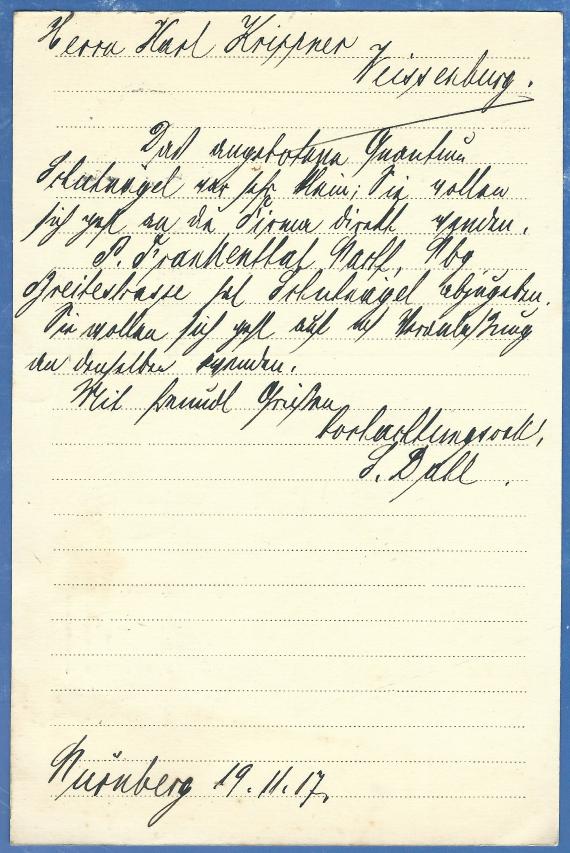 Herrn Karl Krippner
Weissenburg.
Das angebotene Quantum
Schuhnägel war sehr klein; Sie wollen
sich gefl an die Firma direkt wenden.
P. Frankenthal Nachf, Nbg
Breitestrasse hat Schuhnägel abzugeben.
Sie wollen sich gefl auf m/ Veranlassung
an denselben wenden.
Mit freundl Grüßen
hochachtungsvoll,
S. Dahl.
Nürnberg 19.11.17.